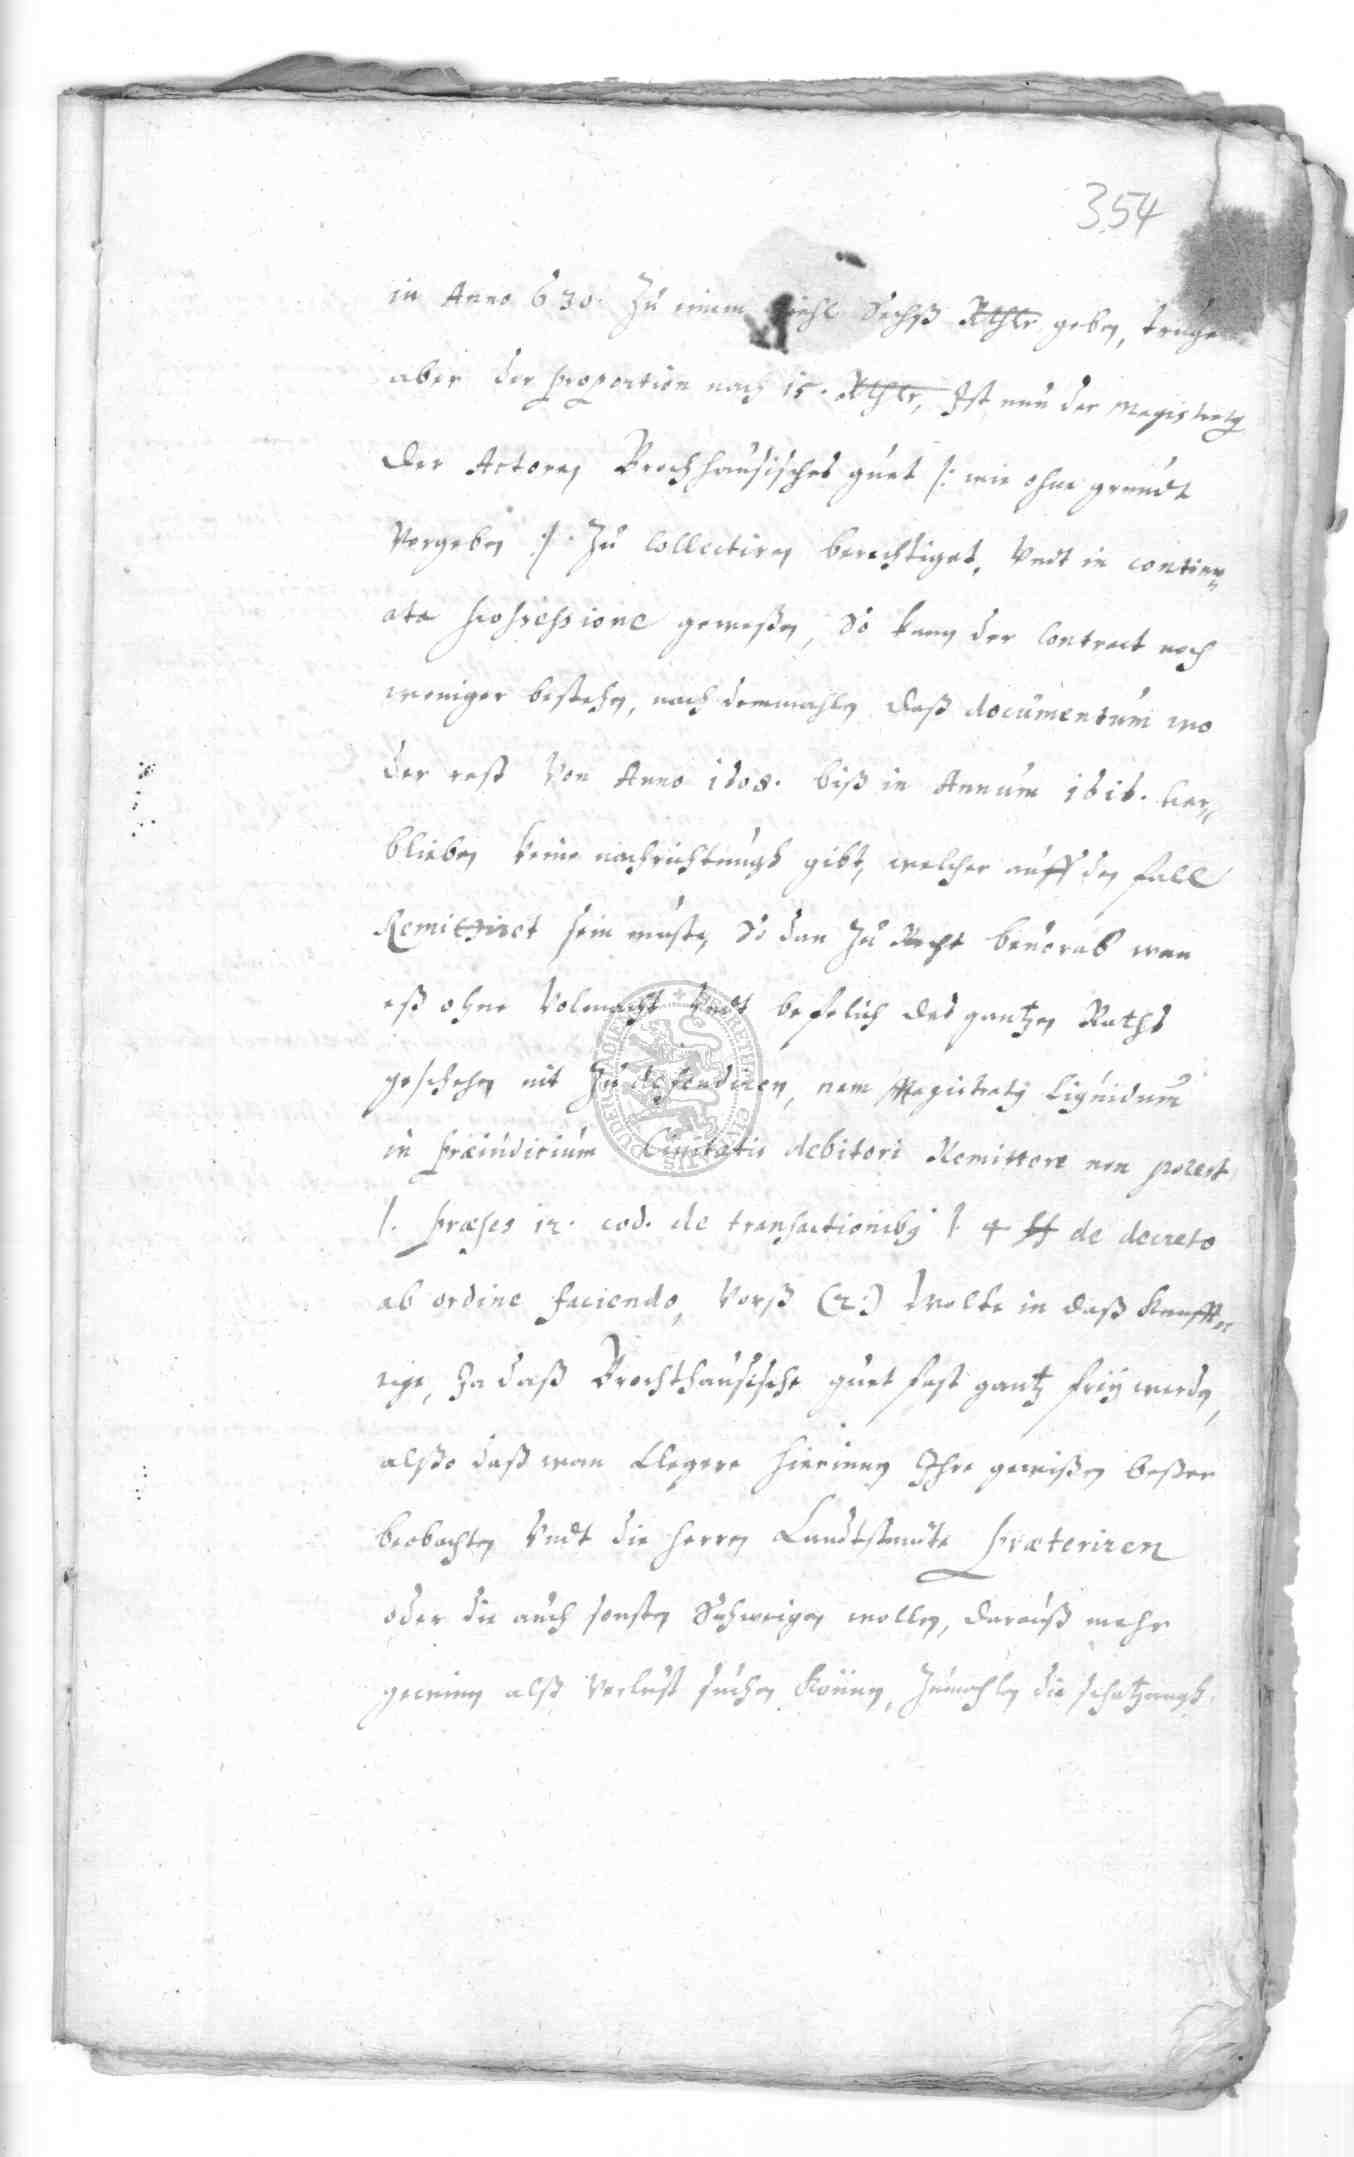 354
in Anno 630. Zu einem Sechß Rthlr geben, truge
aber der proportion nach 15. Rthlr, Ist nun der Magistratus
der Actoren Brochhausisches guet /: wie ohne grundt
Vorgeben :/ Zu Collectiren berechtiget, Undt in continu
ata possessione gewesen, So kann der Contract noch
weniger bestehen, nach demmahlen daß documentum wo
der rest Von Anno 1608. biß in Annum 1616. Ver
blieben keine nachrichtungh gibt, welcher auff den fall
Remittiret sein muste, So dan Zu Recht beuorab wan
eß ohne Volmacht Undt befelich des gantzen Raths
geschehen nit Zu defendiren, nam Magistratus liquidum
in præiudicium Ciuitatis debitori Remittere non potest
l. præses 12. cod. de transactionibus l. 4 ff de decreto
ab ordine faciendo, Vorß (2.) Wolte in daß
Ja daß Brochhausische guet fast gantz freÿ werden,
alßo daß man Klegere hierinnen Ihre gewißen beßer
beobachten Undt die herren Landtstende Præteriren
oder die auch sonsten Schweigen wollen, darauß mehr
gewinn alß Verlust suchen Können, Zumahlen die schatzungh